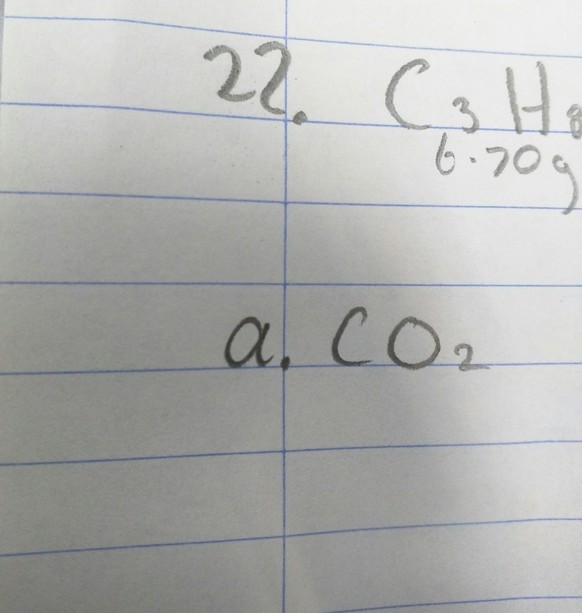 22. C3H8
6.70g
a. CO2